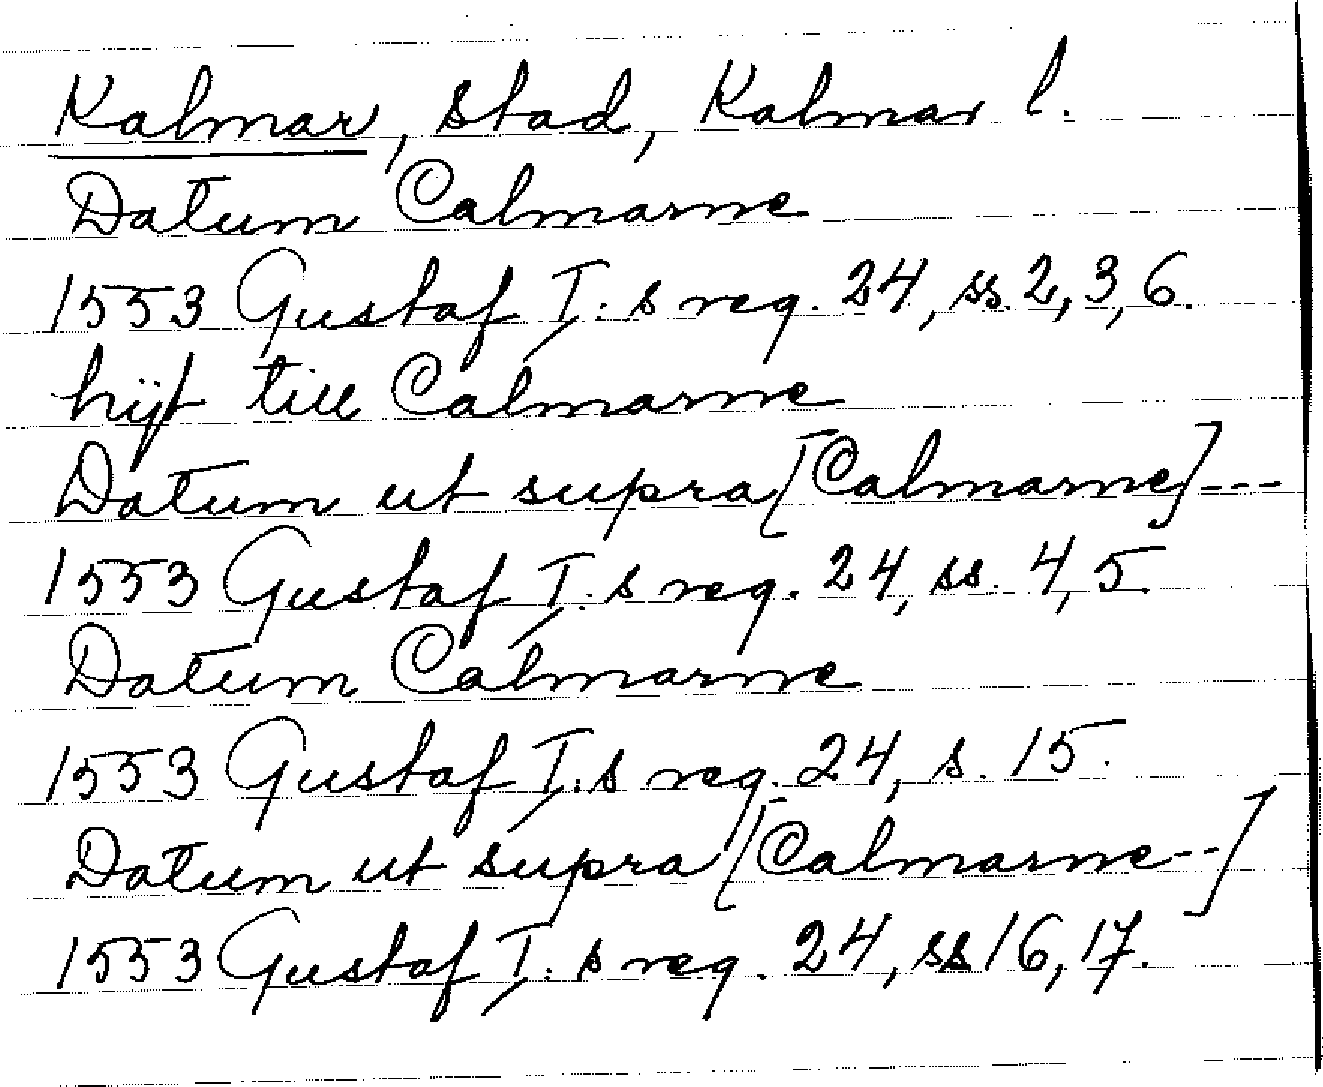 Kalmar, stad, Kalmar l.
Datum Calmarne
1553 Gustaf I:s reg. 24, ss. 2, 3, 6.
hijt till Calmarne
Datum ut supra [Calmarne] ---
1553 Gustaf I:s reg. 24, ss. 4, 5.
Datum Calmarne
1553 Gustaf I:s reg. 24, s. 15.
Datum ut supra [Calmarne --]
1553 Gustaf I:s reg. 24, ss 16, 17.